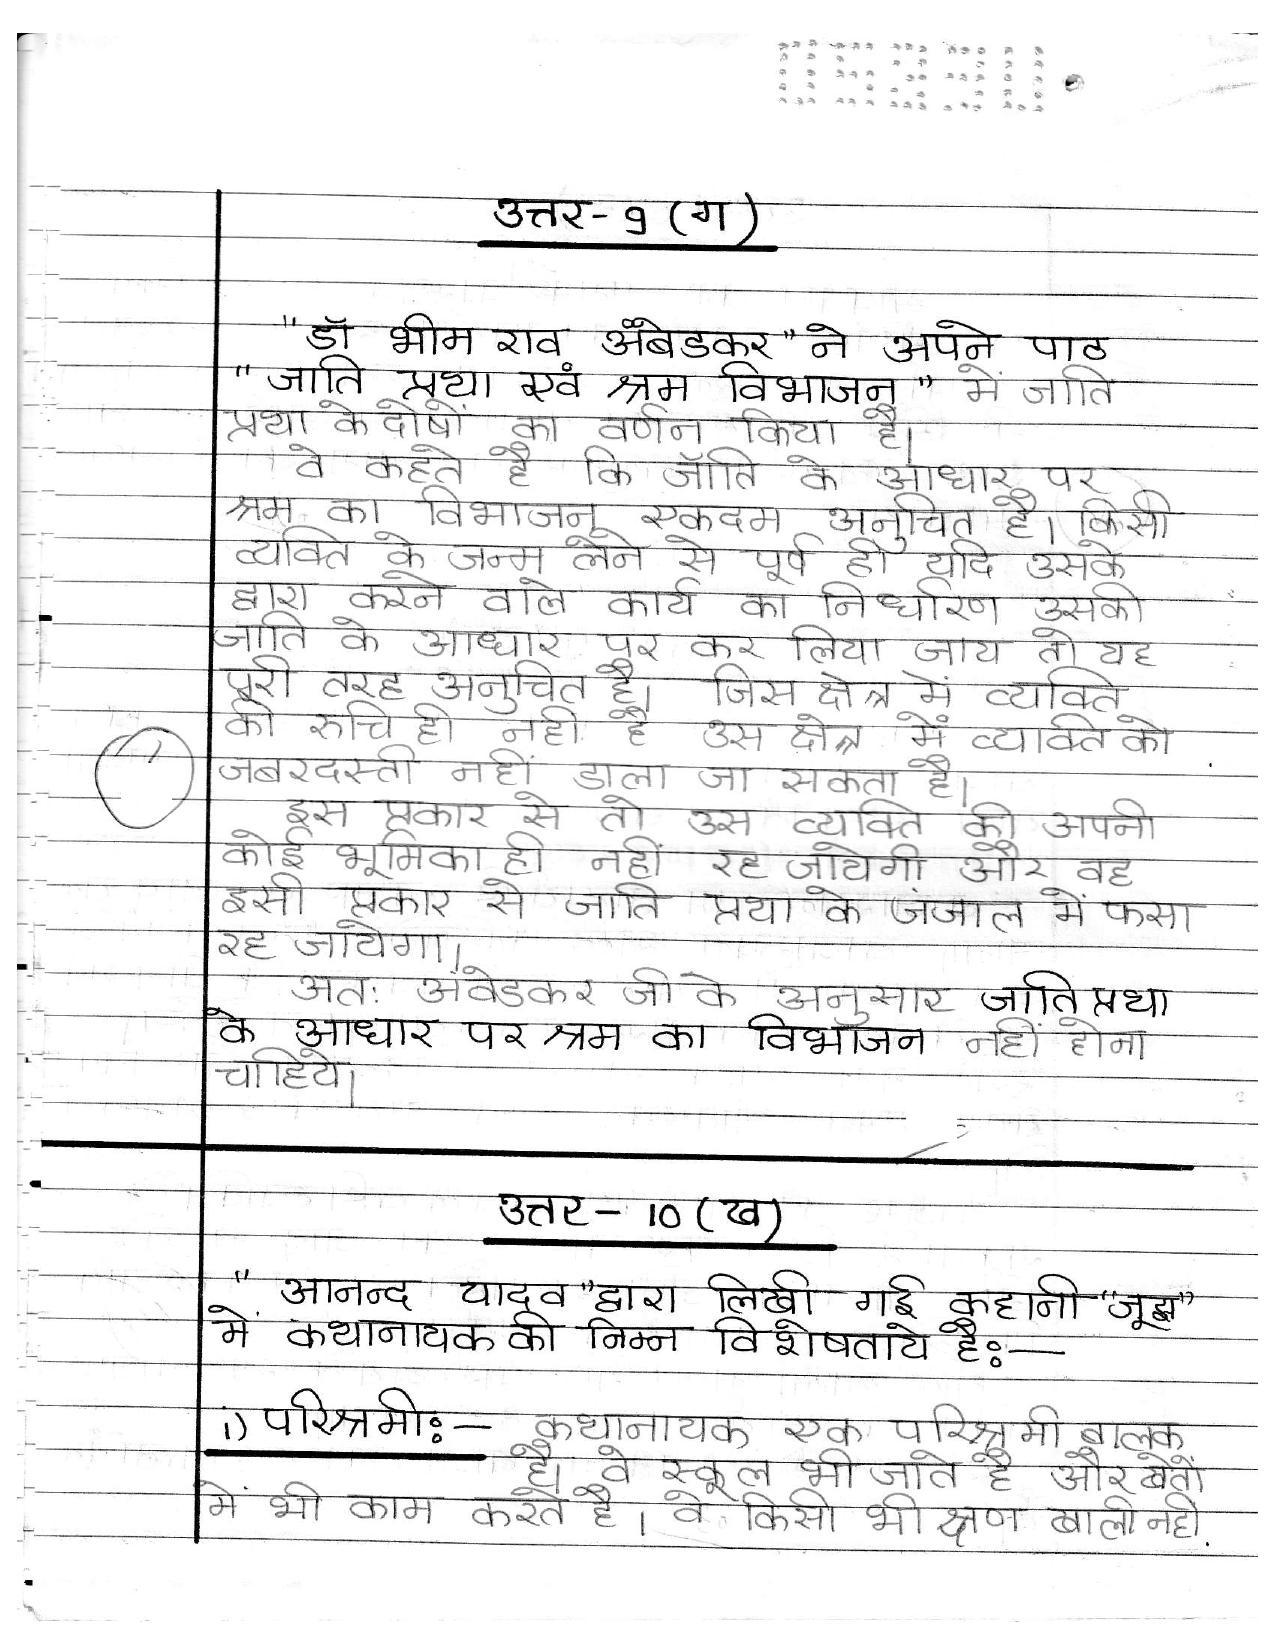 उत्तर- 9 (ग)
"डॉ भीम राव अँबेडकर" ने अपने पाठ
"जाति प्रथा एवं श्रम विभाजन" में जाति
प्रथा के दोषों का वर्णन किया है।
वे कहते है कि जॉति के आधार पर
श्रम का विभाजन एकदम अनुचित है। किसी
व्यक्ति के जन्म लेने से पूर्व ही यदि उसके
द्वारा करने वाले कार्य का निर्धारण उसकी
जाति के आधार पर कर लिया जाय तो यह
पूरी तरह अनुचित है। जिस क्षेत्र में व्यक्ति
की रुचि ही नही है उस क्षेत्र में व्यक्ति को
जबरदस्ती नहीं डाला जा सकता है।
इस प्रकार से तो उस व्यक्ति की अपनी
कोई भूमिका ही नहीं रह जायेगी और वह
इसी प्रकार से जाति प्रथा के जंजाल में फसा
रह जायेगा।
अतः अंवेडकर जी के अनुसार जाति प्रथा
के आधार पर श्रम का विभाजन नहीं होना
चाहिये।
उत्तर - 10 (ख)
"आनन्द यादव" द्वारा लिखी गई कहानी "जूझ"
में कथानायक की निम्न विशेषताये हैः—
i) परिश्रमीः— कथानायक एक परिश्रमी बालक
है। वे स्कूल भी जाते है और खेतों
में भी काम करते है। वे किसी भी क्षण खाली नही